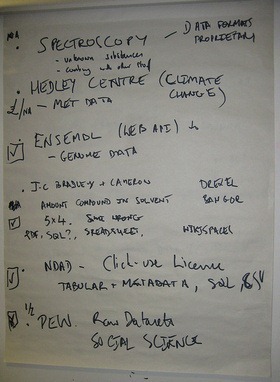 N/A • SPECTROSCOPY — DATA FORMATS
PROPRIETARY
- unknown substances
- with other
• HEDLEY CENTRE (CLIMATE
CHANGE)
£/NA — MET DATA
• ENSEMBL (WEB API)
- GENOME DATA
• J-C BRADLEY + CAMERON DREXEL
AMOUNT COMPOUND IN SOLVENT BANGOR
5x4, SOME WRONG
PDF, SQL?, SPREADSHEET, WIKISPACES
• NDAD - Click-use Licence
TABULAR + METADATA, SQL, CSV
1/2
• PEW. Raw Datasets
SOCIAL SCIENCE